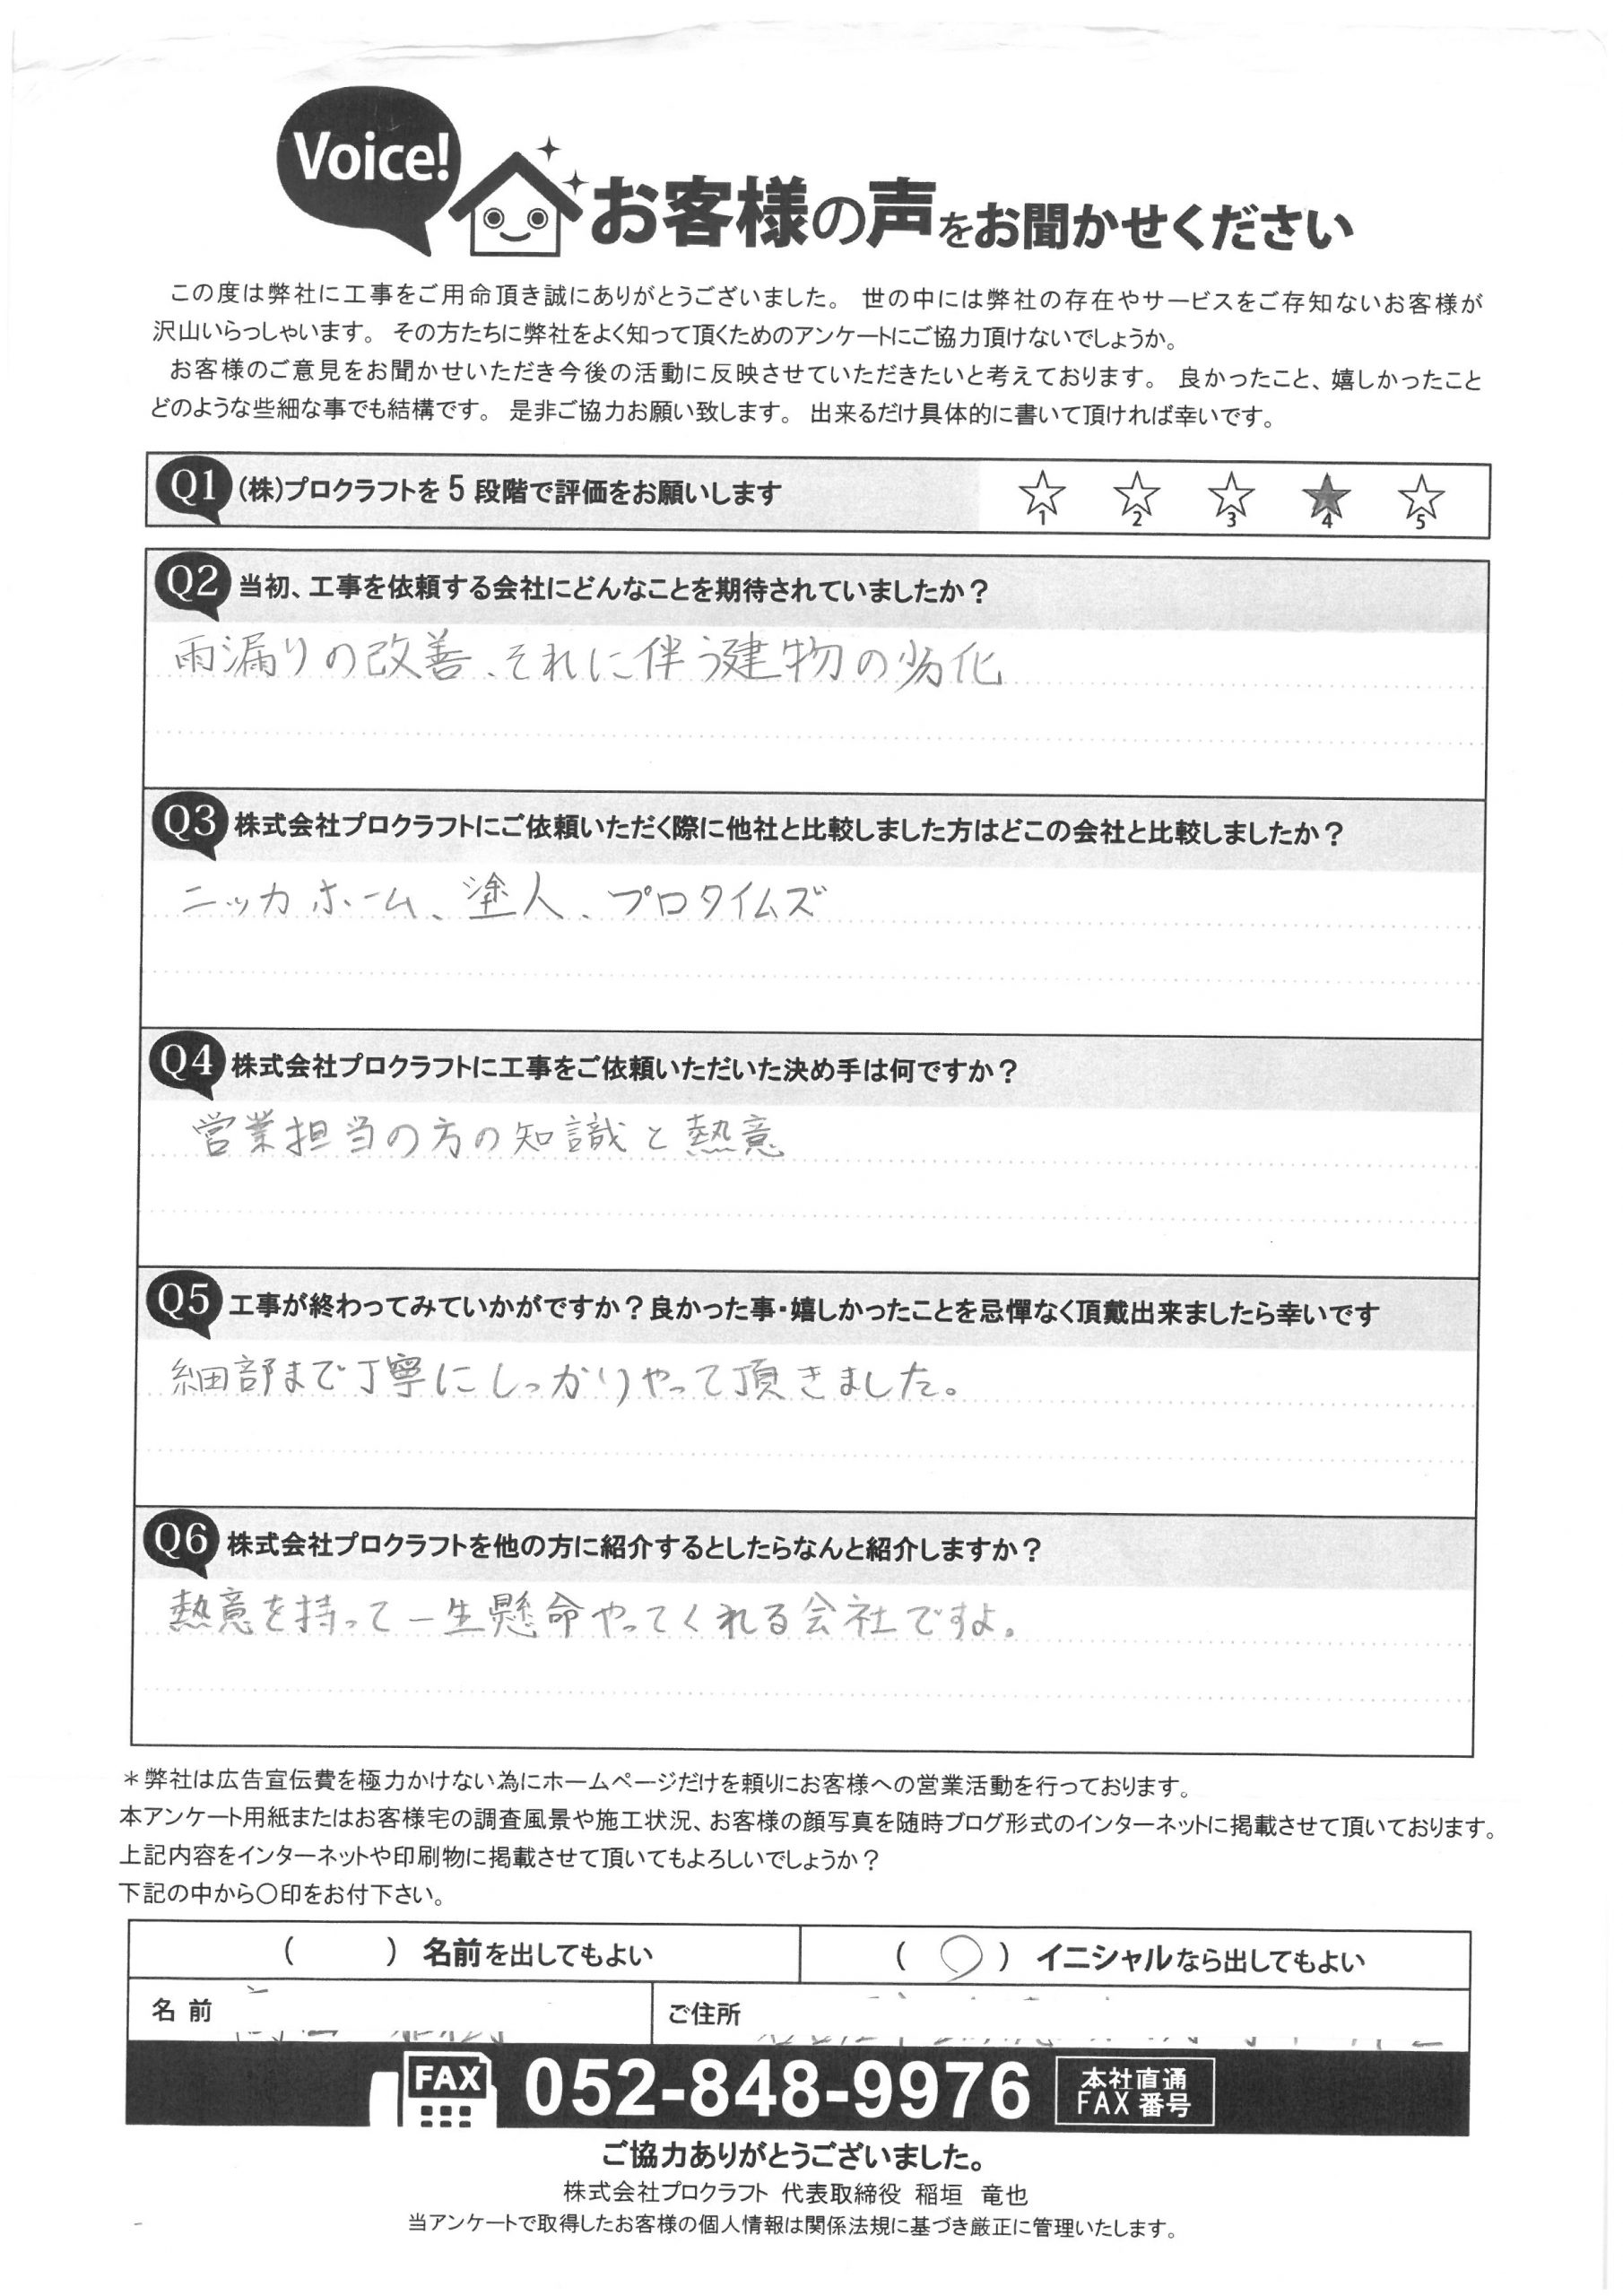 Voice!
お客様の声をお聞かせください
この度は弊社に工事をご用命頂き誠にありがとうございました。 世の中には弊社の存在やサービスをご存知ないお客様が
沢山いらっしゃいます。 その方たちに弊社をよく知って頂くためのアンケートにご協力頂けないでしょうか。
お客様のご意見をお聞かせいただき今後の活動に反映させていただきたいと考えております。 良かったこと、嬉しかったこと
どのような些細な事でも結構です。 是非ご協力お願い致します。 出来るだけ具体的に書いて頂ければ幸いです。
Q1 (株)プロクラフトを 5 段階で評価をお願いします ☆1 ☆2 ☆3 ★4 ☆5
Q2 当初、工事を依頼する会社にどんなことを期待されていましたか？
雨漏りの改善、それに伴う建物の劣化
Q3 株式会社プロクラフトにご依頼いただく際に他社と比較しました方はどこの会社と比較しましたか？
ニッカホーム、塗人、プロタイムズ
Q4 株式会社プロクラフトに工事をご依頼いただいた決め手は何ですか？
営業担当の方の知識と熱意
Q5 工事が終わってみていかがですか？良かった事・嬉しかったことを忌憚なく頂戴出来ましたら幸いです
細部まで丁寧にしっかりやって頂きました。
Q6 株式会社プロクラフトを他の方に紹介するとしたらなんと紹介しますか？
熱意を持って一生懸命やってくれる会社ですよ。
＊弊社は広告宣伝費を極力かけない為にホームページだけを頼りにお客様への営業活動を行っております。
本アンケート用紙またはお客様宅の調査風景や施工状況、お客様の顔写真を随時ブログ形式のインターネットに掲載させて頂いております。
上記内容をインターネットや印刷物に掲載させて頂いてもよろしいでしょうか？
下記の中から〇印をお付下さい。
( ) 名前を出してもよい ( ○ ) イニシャルなら出してもよい
名 前 ご住所
FAX 052-848-9976 本社直通
FAX 番号
ご協力ありがとうございました。
株式会社プロクラフト 代表取締役 稲垣 竜也
当アンケートで取得したお客様の個人情報は関係法規に基づき厳正に管理いたします。